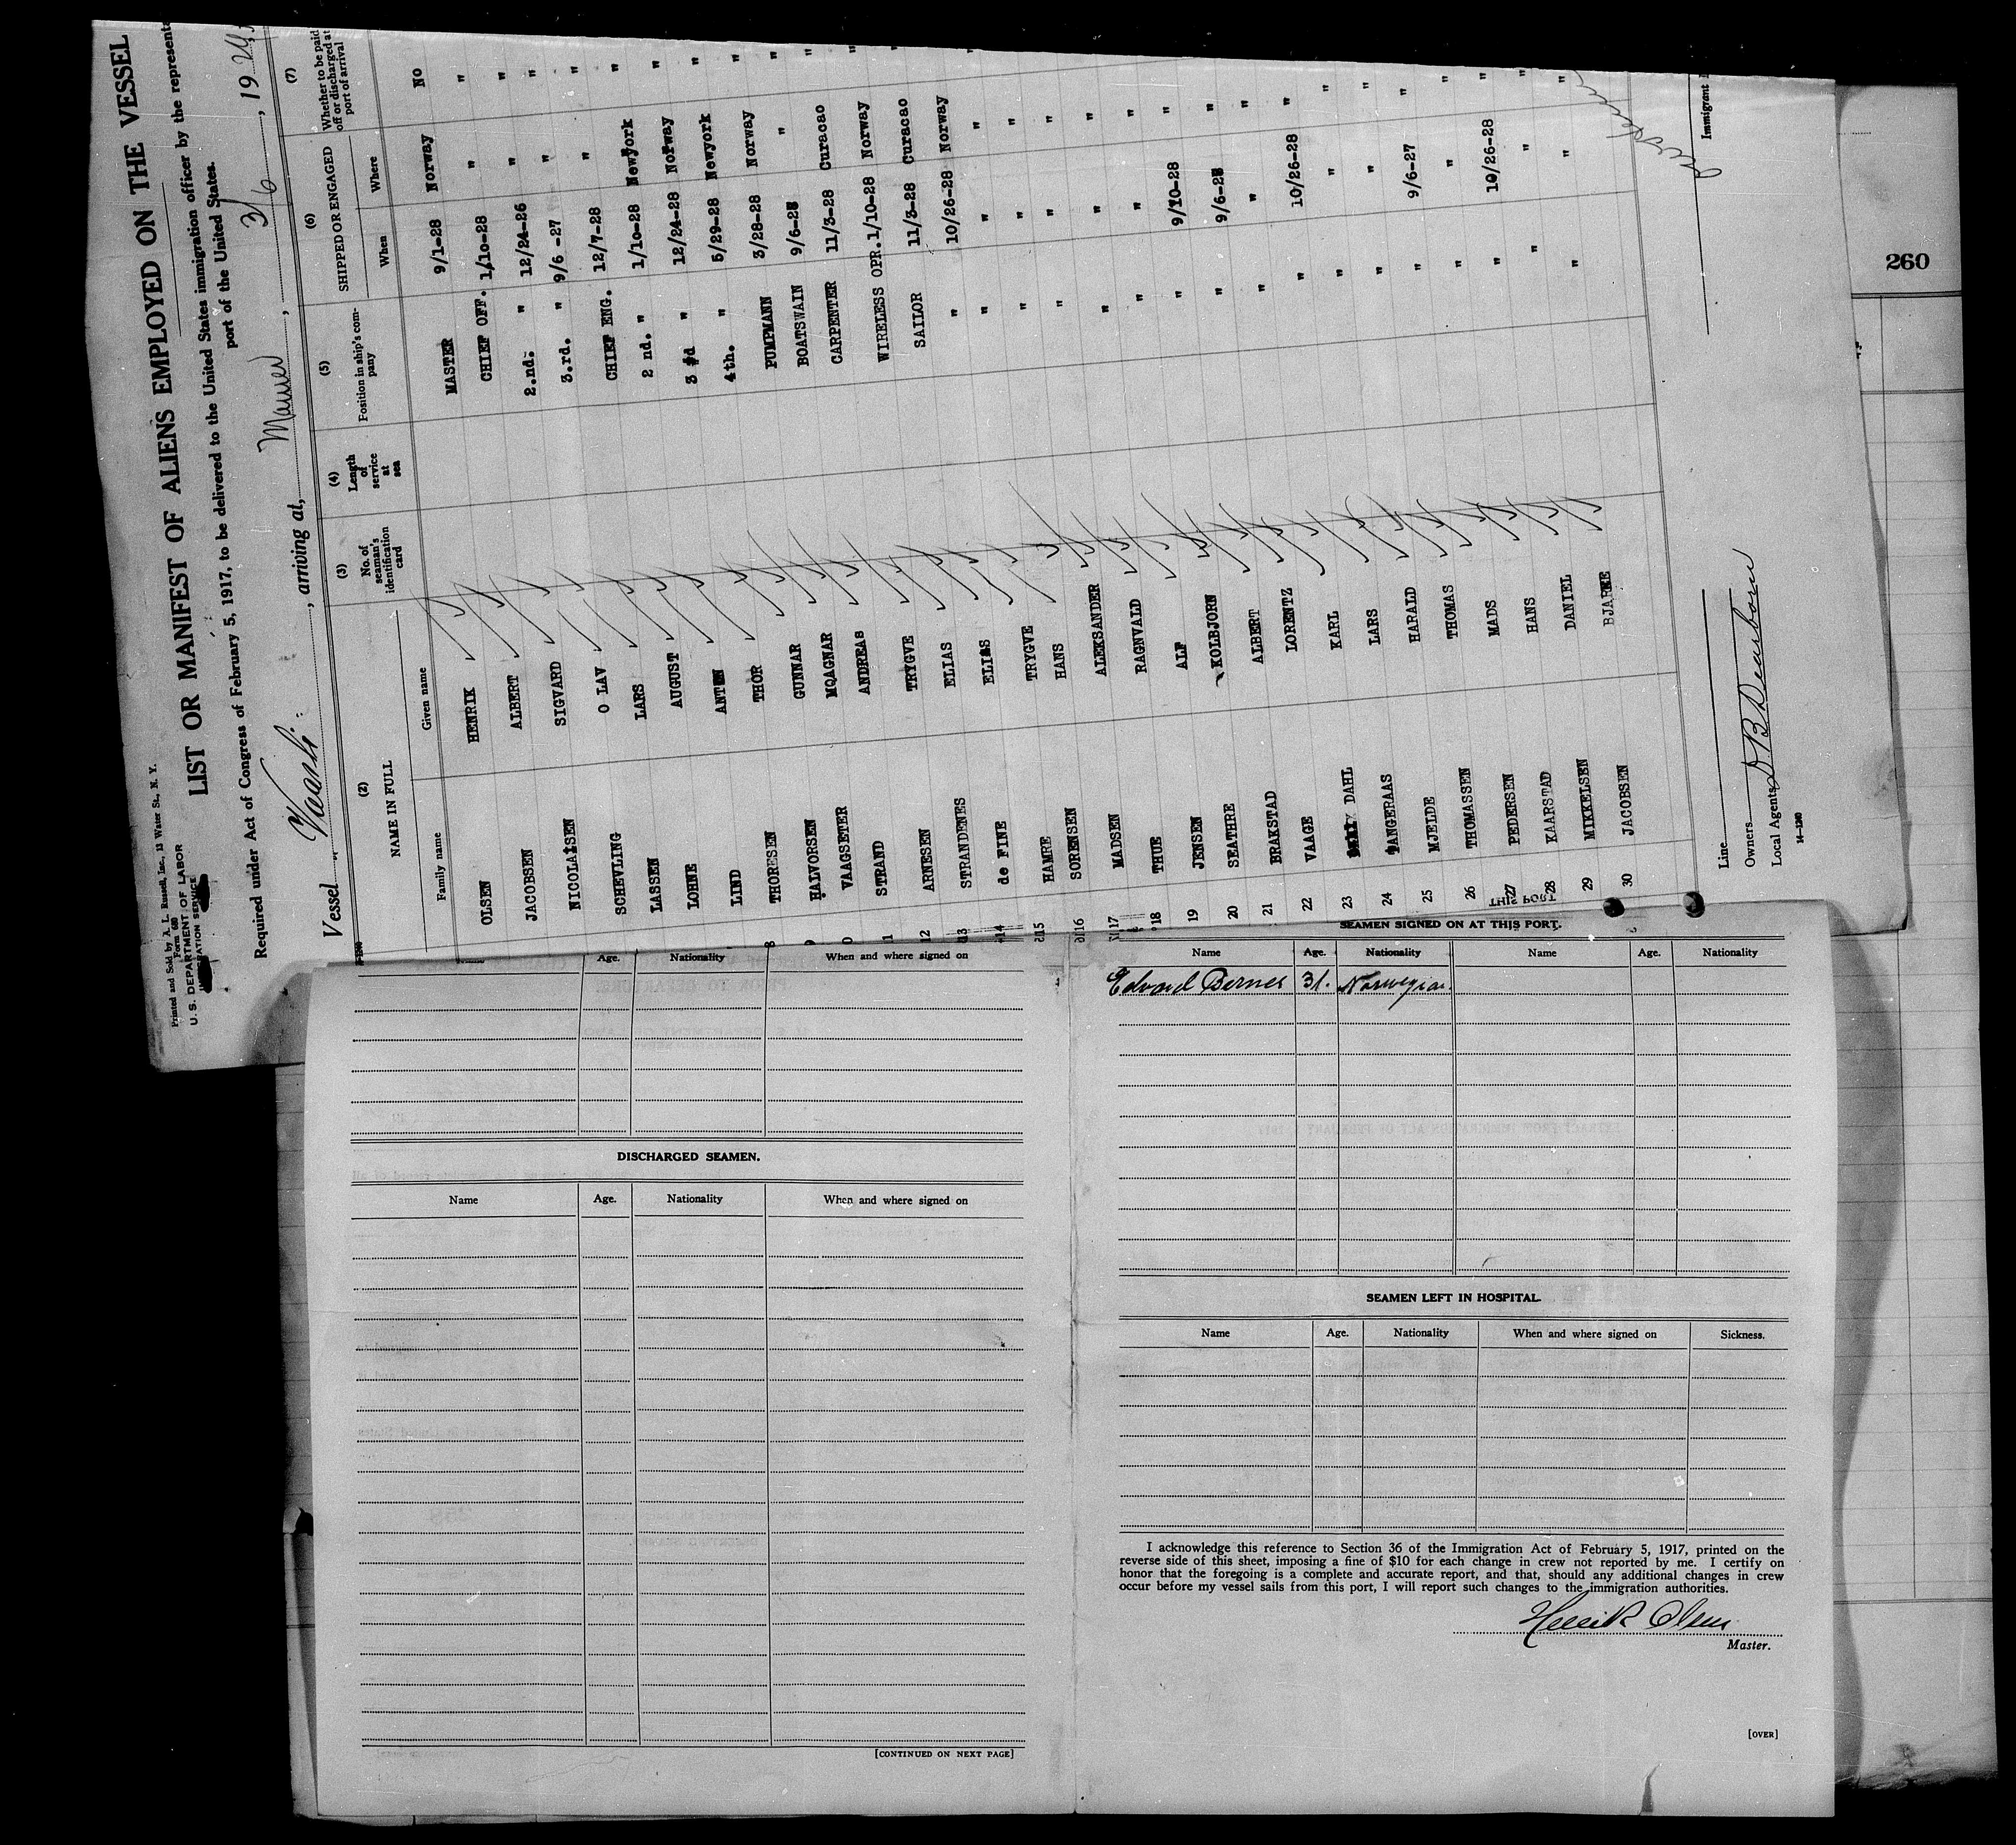 Printed and Sold by A. L. Russell, Inc., 13 Water St., N. Y.
Form 680
U. S. DEPARTMENT OF LABOR
IMMIGRATION SERVICE
LIST OR MANIFEST OF ALIENS EMPLOYED ON THE VESSEL
Required under Act of Congress of February 5, 1917, to be delivered to the United States immigration officer by the represent
port of the United States.
Vessel Vaarli, arriving at, , 3/6, 19
(2) (3) (4) (5) (6) (7)
NAME IN FULL No. of seaman's identification card Length of service at sea Position in ship's company SHIPPED OR ENGAGED Whether to be paid off or discharged at port of arrival
Family name Given name When Where
OLSEN HENRIK MASTER 9/1-28 Norway No
JACOBSEN ALBERT CHIEF OFF. 1/10-28 " "
NICOLAISEN SIGVARD 2.nd. " 12/24-26 " "
SCHEVLING O LAV 3.rd. " 9/6 -27 " "
LASSEN LARS CHIEF ENG. 12/7-28 " "
LOHNE AUGUST 2 nd. " 1/10-28 Newyork "
LIND ANTON 3 d " 12/24-28 Norway "
8 THORESEN THOR 4th. " 5/29-28 Newyork "
9 HALVORSEN GUNNAR PUMPMANN 3/28-28 Norway "
0 VAAGSETER MQAGNAR BOATSWAIN 9/6-28 " "
11 STRAND ANDREAS CARPENTER 11/3-28 Curacao "
12 ARNESEN TRYGVE WIRELESS OPR. 1/10-28 Norway "
13 STRANDENES ELIAS SAILOR 11/3-28 Curacao "
14 de FINE ELIAS " 10/26-28 Norway "
15 HAMRE TRYGVE " " " "
16 SORENSEN HANS " " " "
17 MADSEN ALEKSANDER " " " "
18 THUE RAGNVALD " " " "
19 JENSEN ALF " " " "
20 SEATHRE KOLBJORN " 9/10-28 " "
21 BRAKSTAD ALBERT " 9/6-28 " "
22 VAAGE LORENTZ " " " "
23 DAHL KARL " 10/26-28 " "
24 TANGERAAS LARS " " " "
25 MJELDE HARALD " " " "
26 THOMASSEN THOMAS " 9/6-27 " "
27 PEDERSEN MADS " " " "
28 KAARSTAD HANS " 10/26-28 " "
29 MIKKELSEN DANIEL " " " "
30 JACOBSEN BJARNE " " " "
Line
Owners
Local Agents D B Dearborn
14-1240
Immigrant
260
Age. Nationality When and where signed on
DISCHARGED SEAMEN.
Name Age. Nationality When and where signed on
[CONTINUED ON NEXT PAGE]
THIS PORT
SEAMEN SIGNED ON AT THIS PORT.
Name Age. Nationality Name Age. Nationality
Edvard Bernes 31. Norwegian.
SEAMEN LEFT IN HOSPITAL.
Name Age. Nationality When and where signed on Sickness.
I acknowledge this reference to Section 36 of the Immigration Act of February 5, 1917, printed on the
reverse side of this sheet, imposing a fine of $10 for each change in crew not reported by me. I certify on
honor that the foregoing is a complete and accurate report, and that, should any additional changes in crew
occur before my vessel sails from this port, I will report such changes to the immigration authorities.
Henrik Olsen
Master.
[OVER]